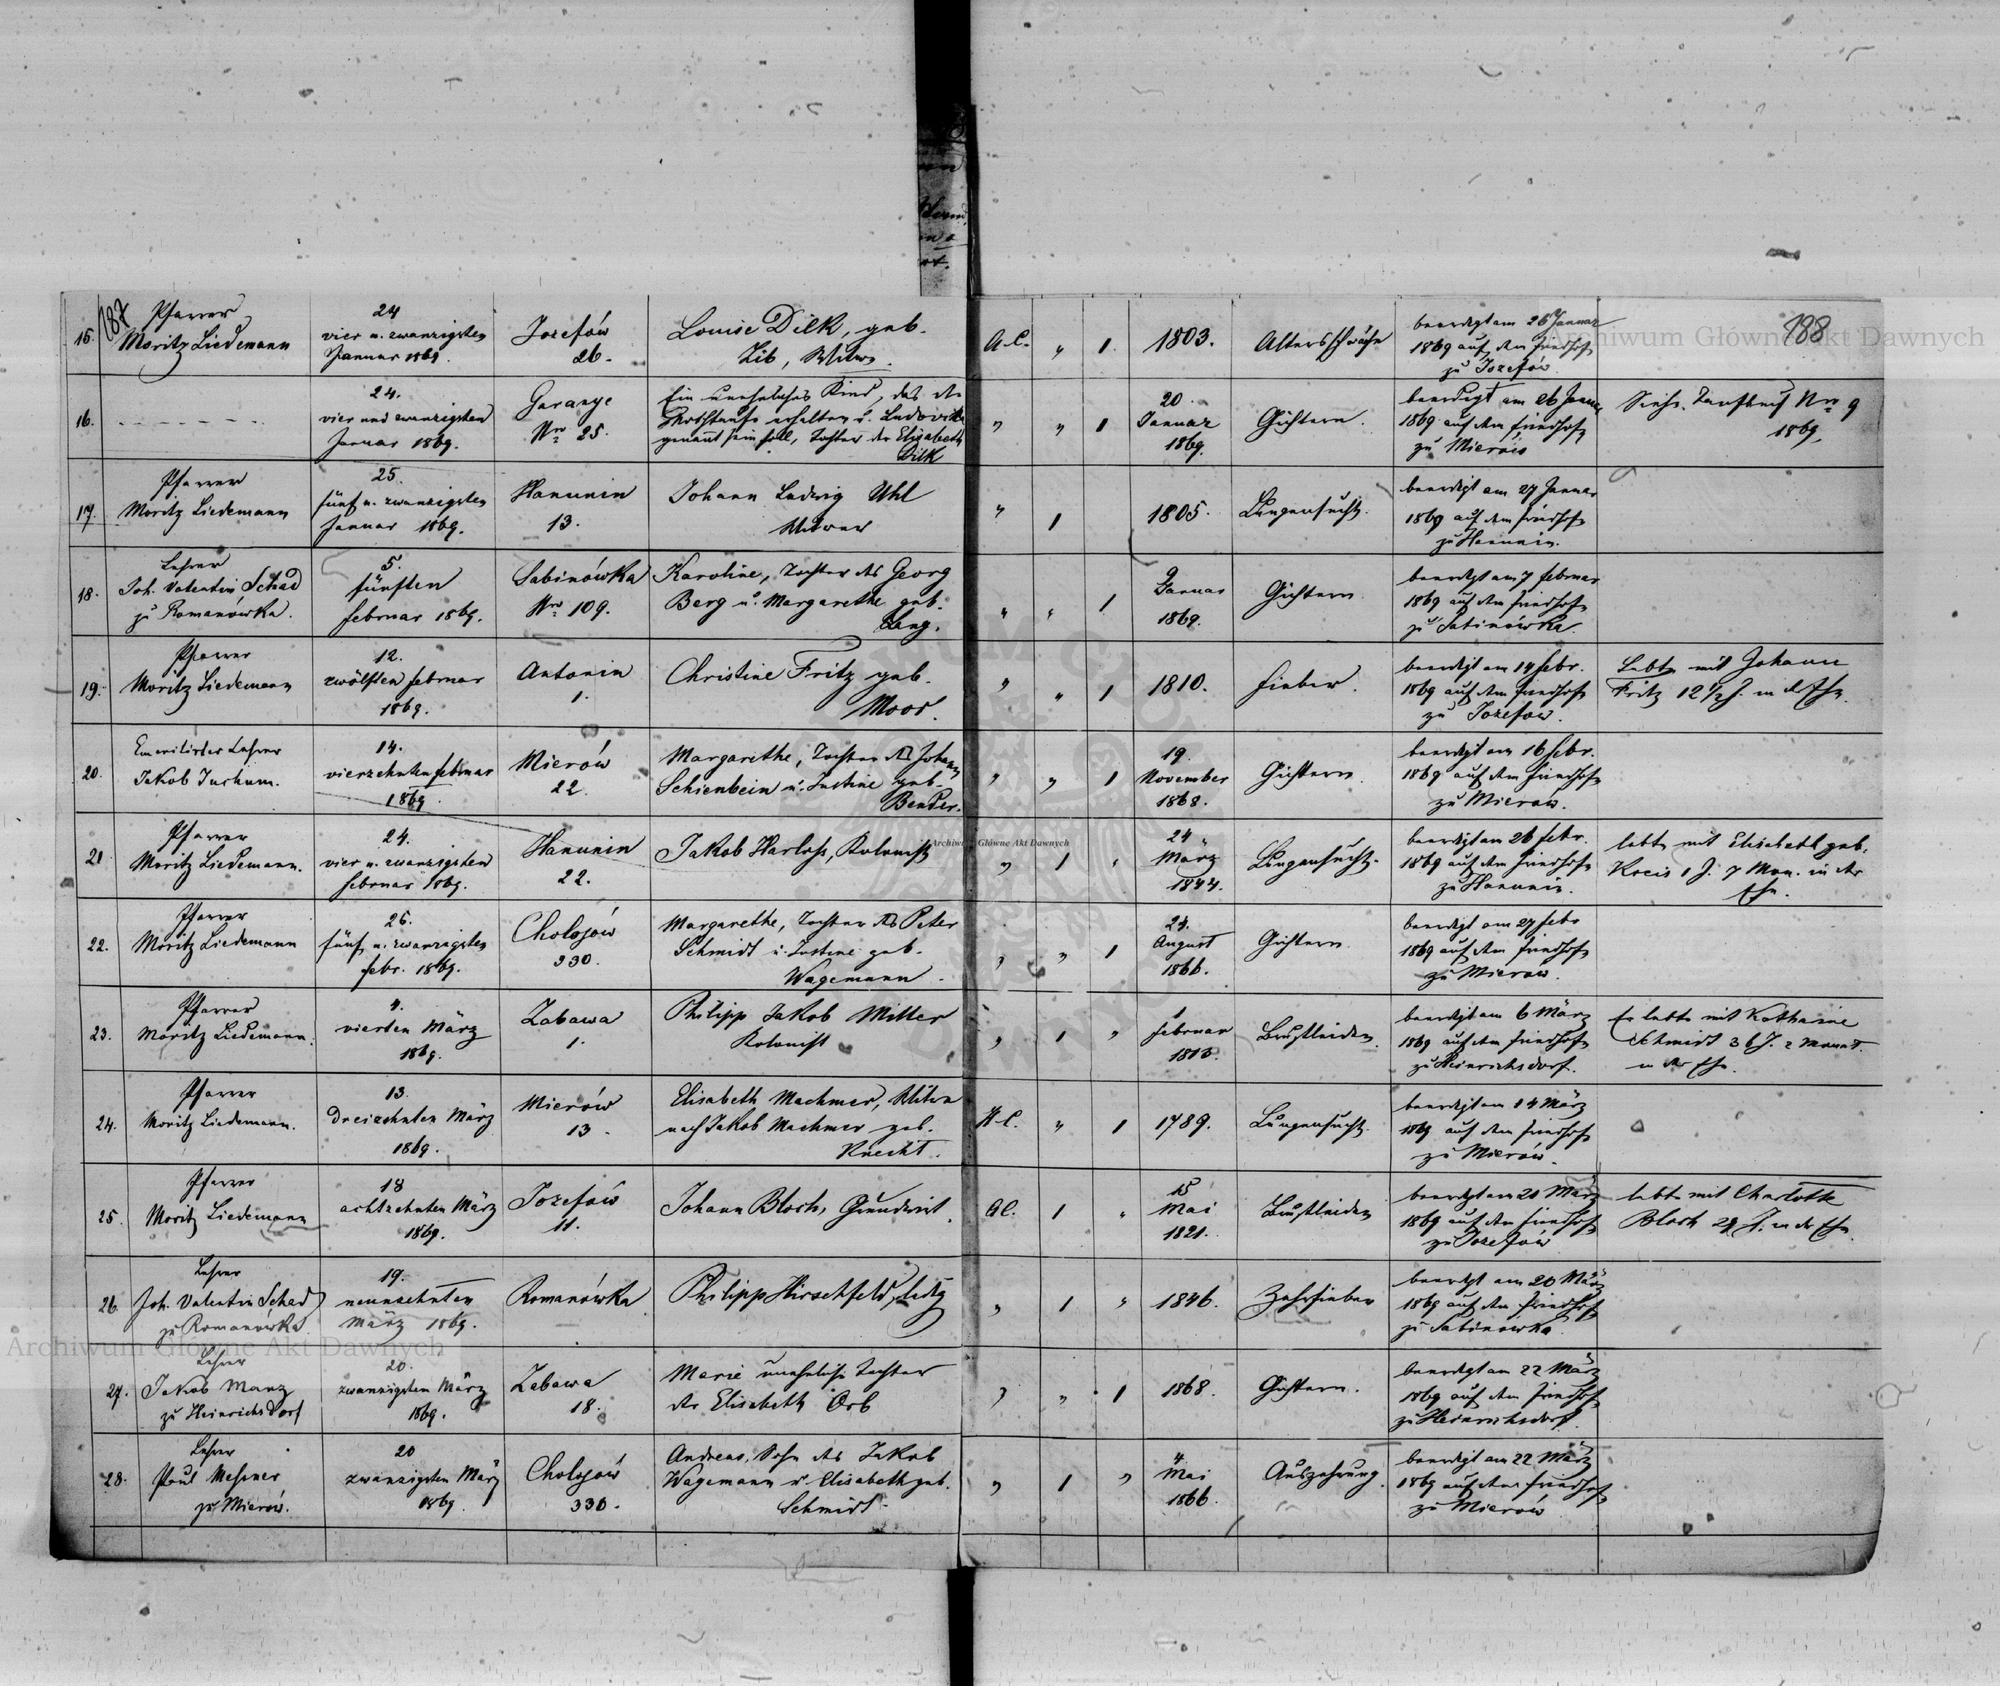 187
188
15.
Pfarrer
Moritz Liedemann
24
vier u. zwanzigsten
Januar 1869.
Jozefów
26.
Louise Dilk, geb.
Lib, Witwe.
A.C. " 1.
1803.
Altersschwäche
beerdigt am 26 Januar
1869 auf dem Friedhofe
zu Jozefów.
16.
24.
vier und zwanzigsten
Januar 1869.
Garanye
Nro 25.
Ein uneheliches Kind, das die
Nothtaufe erhalten u. Ludovika
genannt sein soll, Tochter der Elisabeth
Dilk
" " 1
20.
Januar
1869.
Gichtern.
beerdigt am 26 Januar
1869 auf dem Friedhofe
zu Mierów
Siehe Taufbuch Nro 9
1869.
17.
Pfarrer
Moritz Liedemann
25.
fünf u. zwanzigsten
Januar 1869.
Hanunin
13.
Johann Ludwig Uhl
Witwer
" 1
1805.
Lungensucht.
beerdigt am 27 Januar
1869 auf dem Friedhofe
zu Hanunin.
18.
Lehrer
Joh. Valentin Schad
zu Romanówka.
5.
fünften
Februar 1869.
Sabinówka
Nro 109.
Karoline, Tochter des Georg
Berg u. Margarethe geb.
Lang.
" " 1
9
Januar
1869.
Gichtern
beerdigt am 7 Februar
1869 auf dem Friedhofe
zu Sabinówka.
19.
Pfarrer
Moritz Liedemann
12.
zwölften Februar
1869.
Antonin
1.
Christine Fritz geb.
Moos.
" " 1
1810.
Fieber.
beerdigt am 14 Febr.
1869 auf dem Friedhofe
zu Jozefow.
Lebte mit Johann
Fritz 12 1/2 J. in d. Ehe.
20.
Emeritirter Lehrer
Jakob Juchum.
14.
vierzehnten Februar
1869
Mierów
22.
Margarethe, Tochter des Johann
Schienbein u. Justine geb.
Bender.
" " 1
19.
November
1868.
Gichtern.
beerdigt am 16 Febr.
1869 auf dem Friedhofe
zu Mierów.
21
Pfarrer
Moritz Liedemann.
24.
vier u. zwanzigsten
Februar 1869.
Hanunin
22.
Jakob Harloß, Kolonist
" 1 "
24
März
1844.
Lungensucht.
beerdigt am 26 Febr.
1869 auf dem Friedhofe
zu Hanunin.
lebte mit Elisabeth geb.
Kreis 1 J. 7 Mon. in der
Ehe.
22.
Pfarrer
Moritz Liedemann
25.
fünf u. zwanzigsten
Febr. 1869.
Chologów
330.
Margarethe, Tochter des Peter
Schmidt u. Justine geb.
Wagemann.
" " 1
24.
August
1866.
Gichtern.
beerdigt am 27 Febr
1869 auf dem Friedhofe
zu Mierow.
23.
Pfarrer
Moritz Liedemann.
4.
vierten März
1869.
Zabawa
1.
Philipp Jakob Miller
Kolonist
" 1 "
1
Februar
Brustleiden.
beerdigt am 6 März
1869 auf dem Friedhofe
zu Heinrichsdorf.
Er lebte mit Katharine
Schmidt 36 J. 2 Monat.
in der Ehe.
24.
Pfarrer
Moritz Liedemann.
13.
dreizehnten März
1869.
Mierów
13.
Elisabeth Machmer, Witwe
nach Jakob Machmer geb.
Knecht.
H.C. " 1
1789.
Lungensucht.
beerdigt am 14 März
1869 auf dem Friedhofe
zu Mierów.
25.
Pfarrer
Moritz Liedemann
18
achtzehnten März
1869.
Jozefów
11.
Johann Bloch, Grundwirt.
A.C. 1 "
15
Mai
1821.
Brustleiden
beerdigt am 20 März
1869 auf dem Friedhofe
zu Jozefów
lebte mit Charlotte
Bloch 29 J. in der Ehe.
26.
Lehrer
Joh. Valentin Schad
zu Romanówka
19.
neunzehnten
März 1869.
Romanówka
Philipp Hirschfeld, ledig
" 1 "
1846.
Zehrfieber
beerdigt am 20 März
1869 auf dem Friedhofe
zu Sabinówka.
27.
Lehrer
Jakob Manz
zu Heinrichsdorf
20.
zwanzigsten März
1869.
Zabawa
18.
Marie uneheliche Tochter
der Elisabeth Orb
" " 1
1868.
Gichtern.
beerdigt am 22 März
1869 auf dem Friedhofe
zu Heinrichsdorf.
28.
Lehrer
Paul Meßner
zu Mierów.
20
zwanzigsten März
1869.
Chologów
330.
Andreas, Sohn des Jakob
Wagemann u. Elisabeth geb.
Schmidt
" 1 "
4
Mai
1866.
Auszehrung.
beerdigt am 22 März
1869 auf dem Friedhofe
zu Mierów
Archiwum Główne Akt Dawnych
Archiwum Główne Akt Dawnych
Archiwum Główne Akt Dawnych